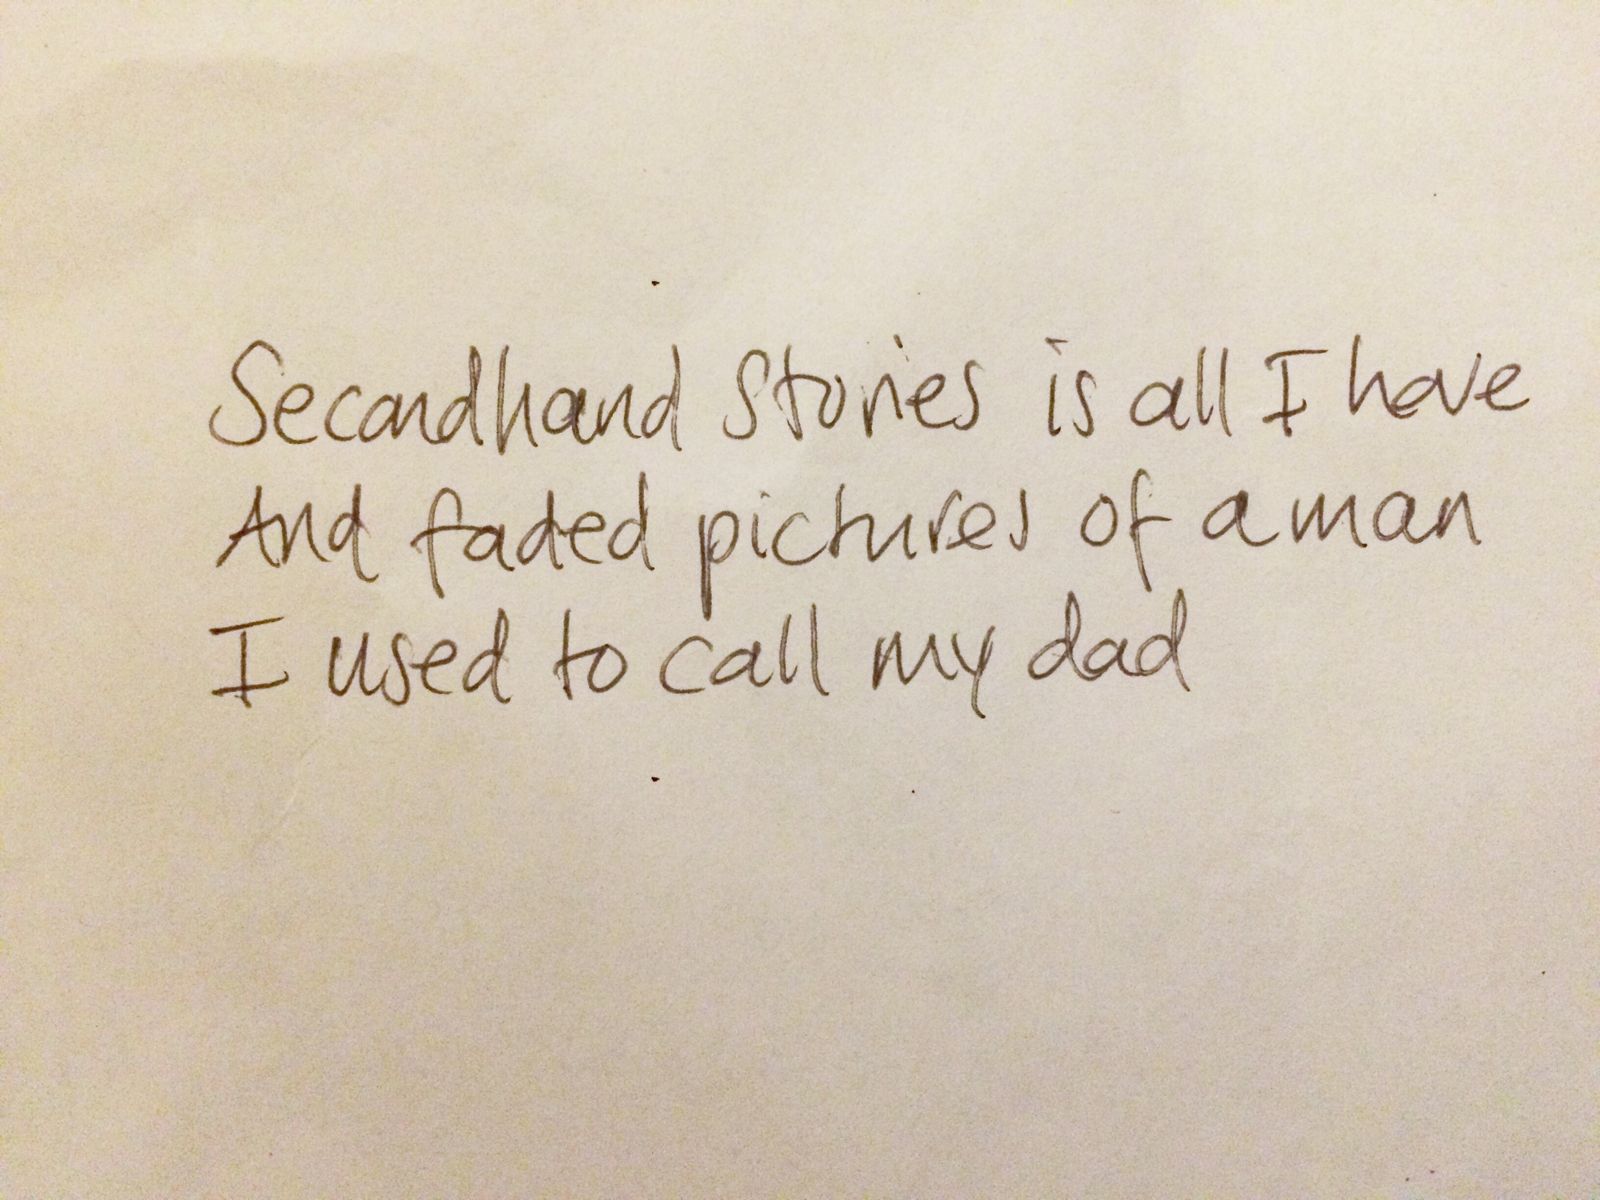 Secondhand Stories is all I have
And faded pictures of a man
I used to call my dad